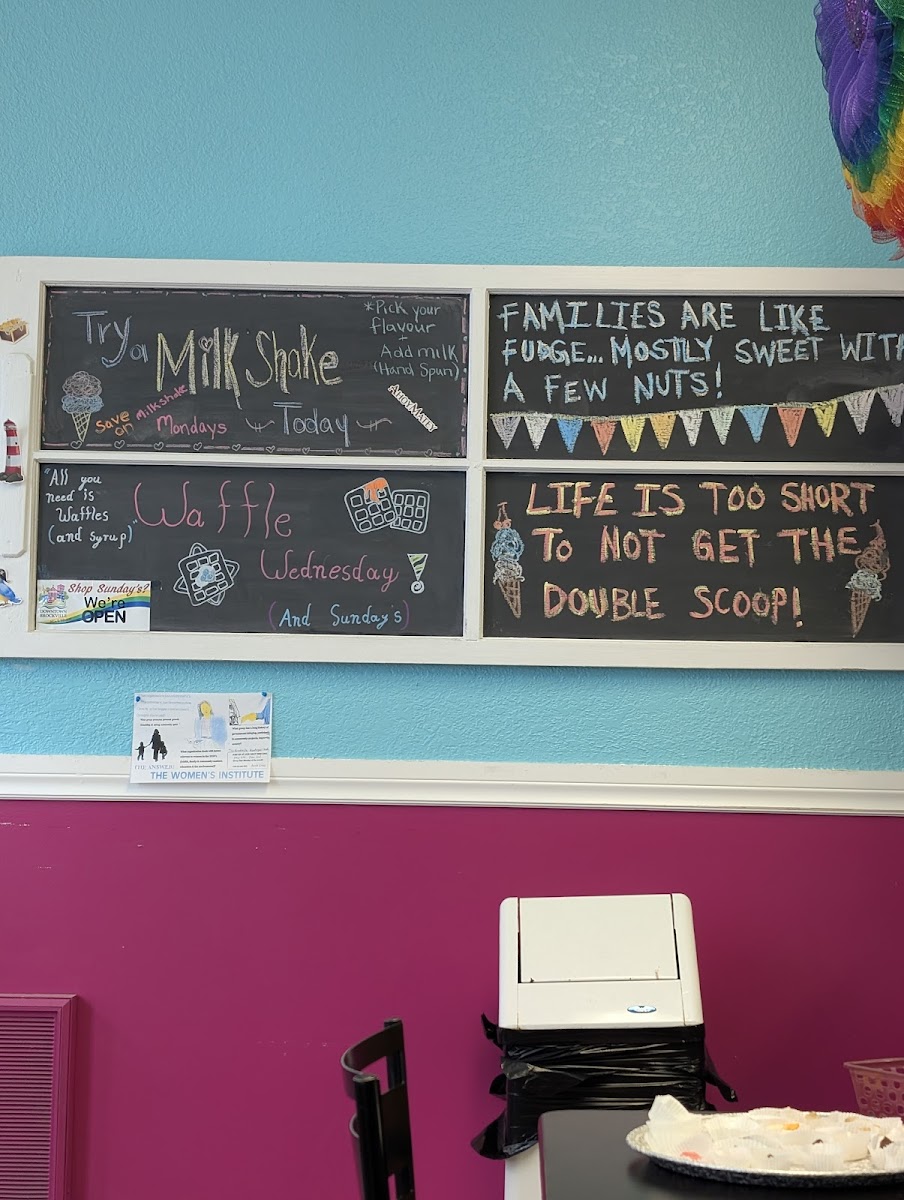 Try a
Milk Shake
Today
save on Milkshake
Mondays
*Pick your
flavour
+
Add milk
(Hand Spun)
AHOY MATEY
FAMILIES ARE LIKE
FUDGE... MOSTLY SWEET WITH
A FEW NUTS!
"All you
need is
Waffles
(and syrup)"
Waffle
Wednesday!
(And Sunday's)
Shop Sunday's?
We're
OPEN
DOWNTOWN
BROCKVILLE
LIFE IS TOO SHORT
TO NOT GET THE
DOUBLE SCOOP!
THE ANSWER:
THE WOMEN'S INSTITUTE